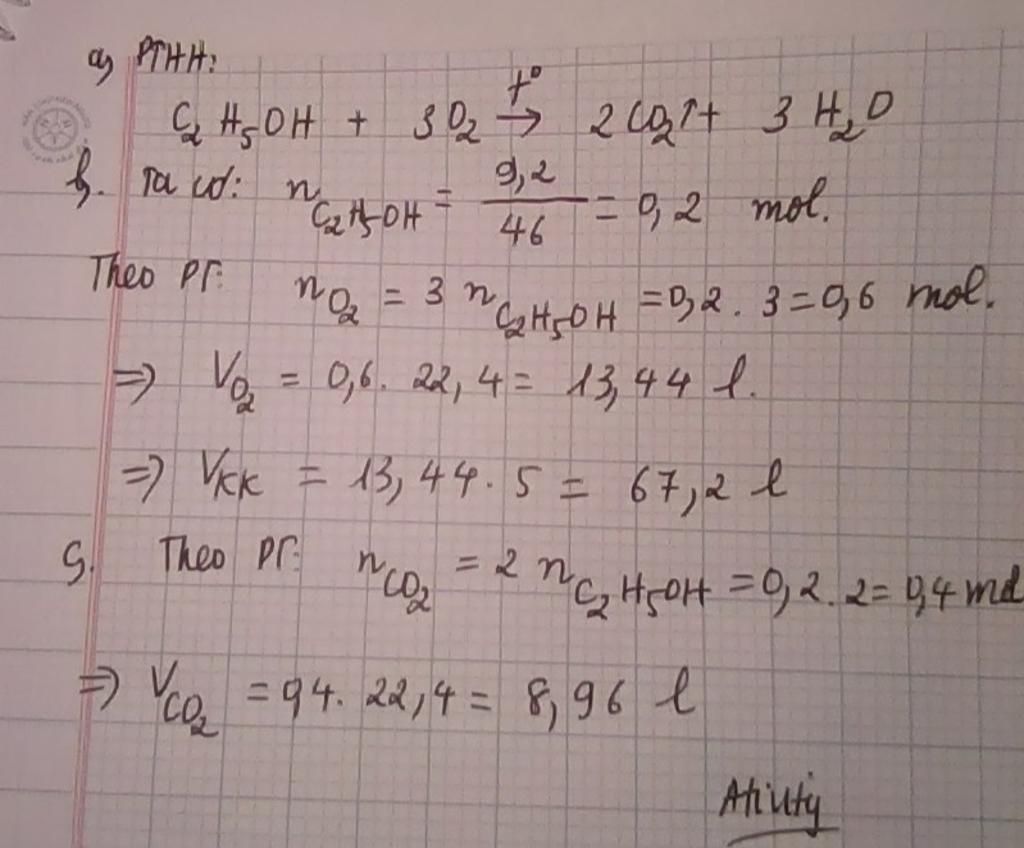 a, PTHH:
C₂H₅OH + 3O₂ →t° 2CO₂↑ + 3H₂O
b. Ta có: n C₂H₅OH = 9,2/46 = 0,2 mol.
Theo PT: n O₂ = 3 n C₂H₅OH = 0,2 . 3 = 0,6 mol.
=> V O₂ = 0,6 . 22,4 = 13,44 l.
=> V KK = 13,44 . 5 = 67,2 l
c. Theo PT: n CO₂ = 2 n C₂H₅OH = 0,2 . 2 = 0,4 mol
=> V CO₂ = 0,4 . 22,4 = 8,96 l